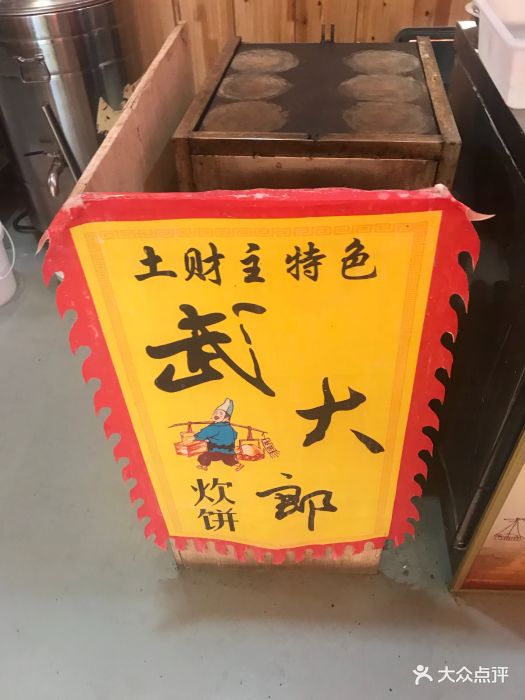 土财主特色
武大郎
炊饼
大众点评